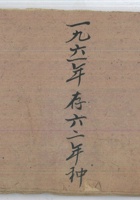 一九六一年存六二年种